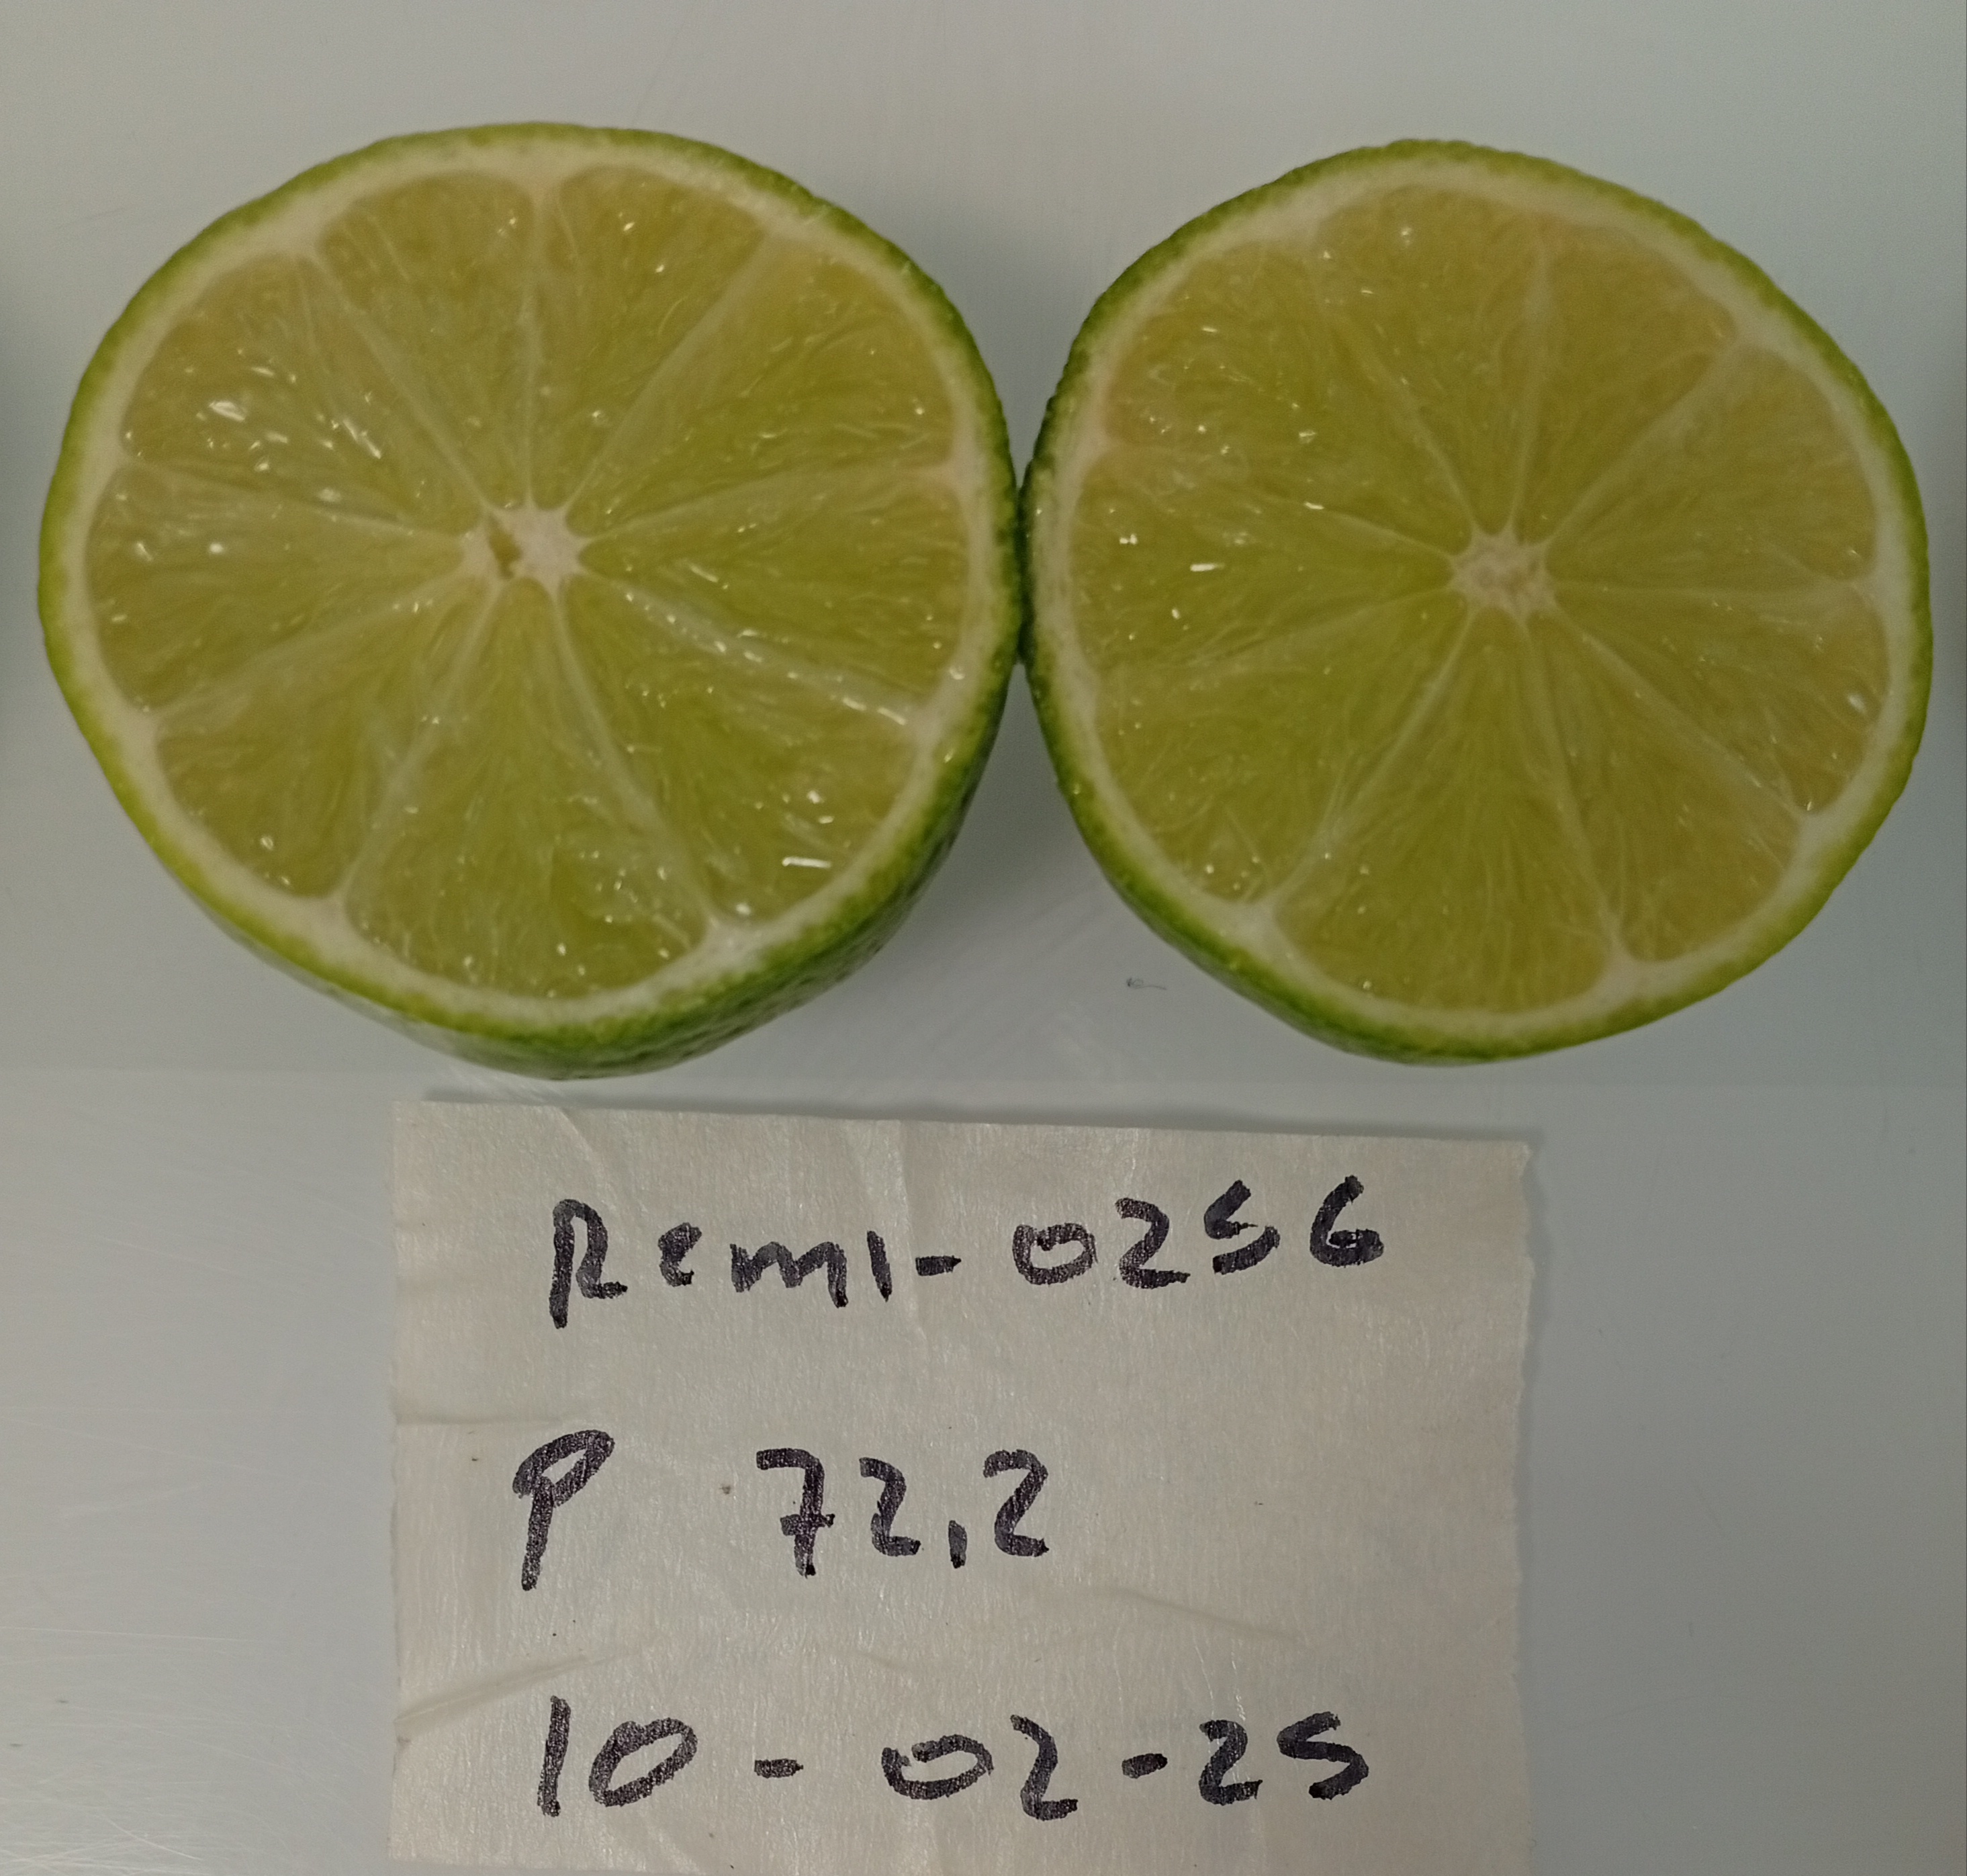 Remi-0256
P 72,2
10-02-25